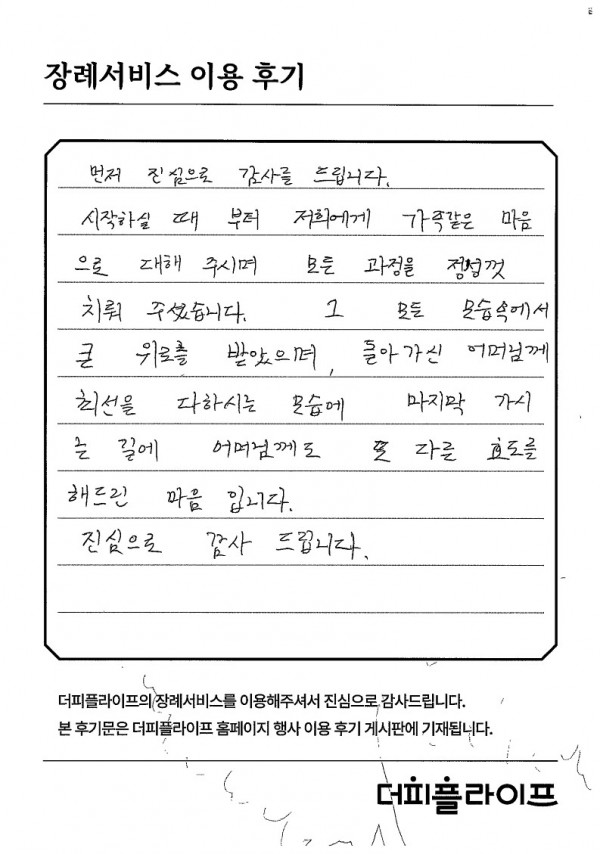 장례서비스 이용 후기
먼저 진심으로 감사를 드립니다.
시작하실 때 부터 저희에게 가족같은 마음
으로 대해 주시며 모든 과정을 정성껏
치뤄 주셨습니다. 그 모든 모습속에서
큰 위로를 받았으며, 돌아가신 어머님께
최선을 다하시는 모습에 마지막 가시
는 길에 어머님께도 또 다른 효도를
해드린 마음 입니다.
진심으로 감사 드립니다.
더피플라이프의 장례서비스를 이용해주셔서 진심으로 감사드립니다.
본 후기문은 더피플라이프 홈페이지 행사 이용 후기 게시판에 기재됩니다.
더피플라이프